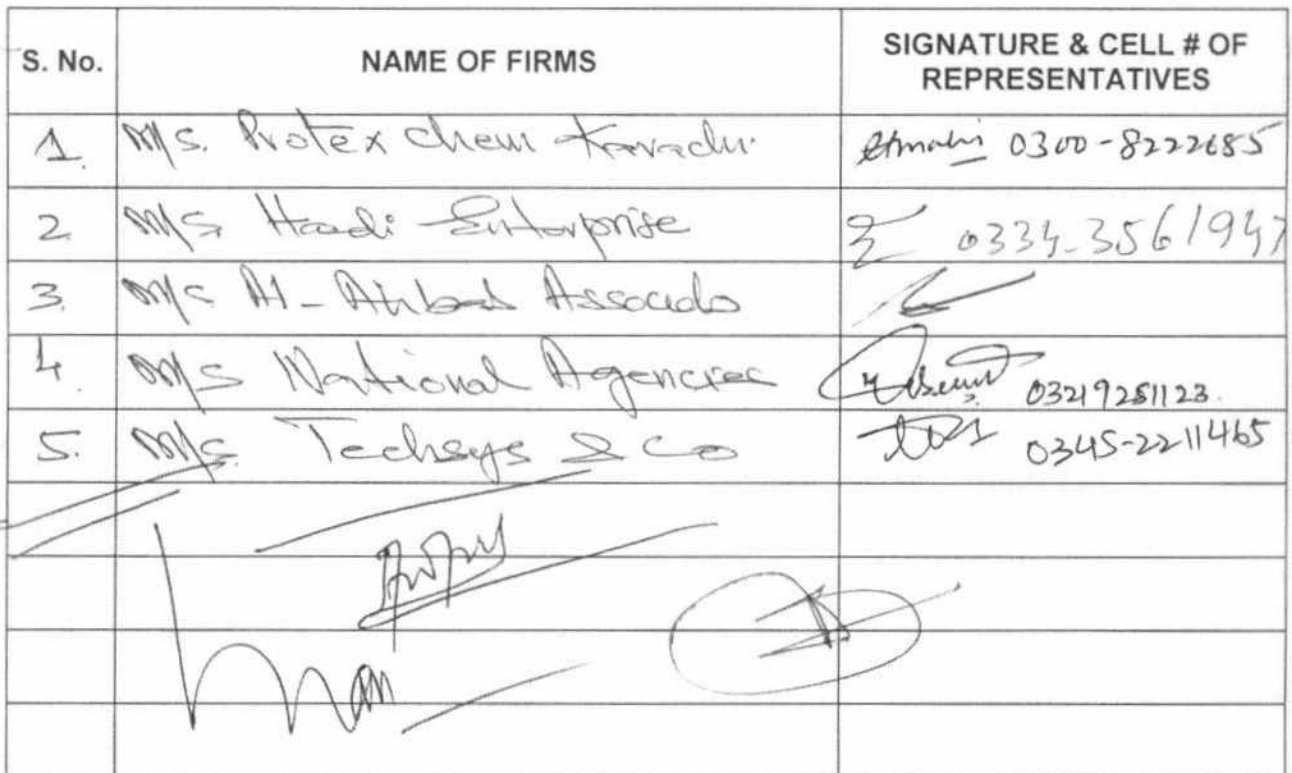 S. No. NAME OF FIRMS SIGNATURE & CELL # OF
REPRESENTATIVES
1. M/S. Protex Chem Karachi 0300-8222685
2. M/S Haadi Enterprise 0334-3561947
3. M/S Al- Associate
4. M/S National Agencies 03219251123.
5. M/S. Techsys & Co 0345-2211465